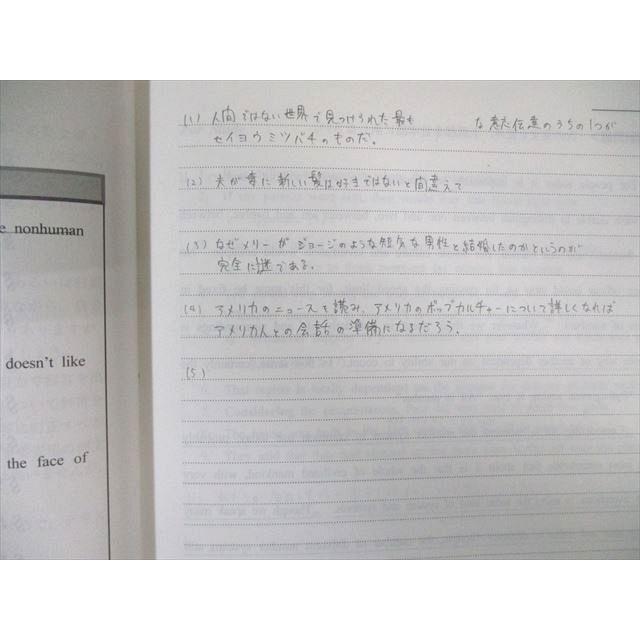 e nonhuman
doesn't like
the face of
(1) 人間ではない世界で見つけられた最も な意志伝達のうちの1つが
セイヨウミツバチのものだ。
(2) 夫が 新しい髪は好きではないと間違えて
(3) なぜメリーがジョージのような短気な男性と結婚したのかというのが
完全に謎である。
(4) アメリカのニュースを読み、アメリカのポップカルチャーについて詳しくなれば
アメリカ人との会話の準備になるだろう。
(5)